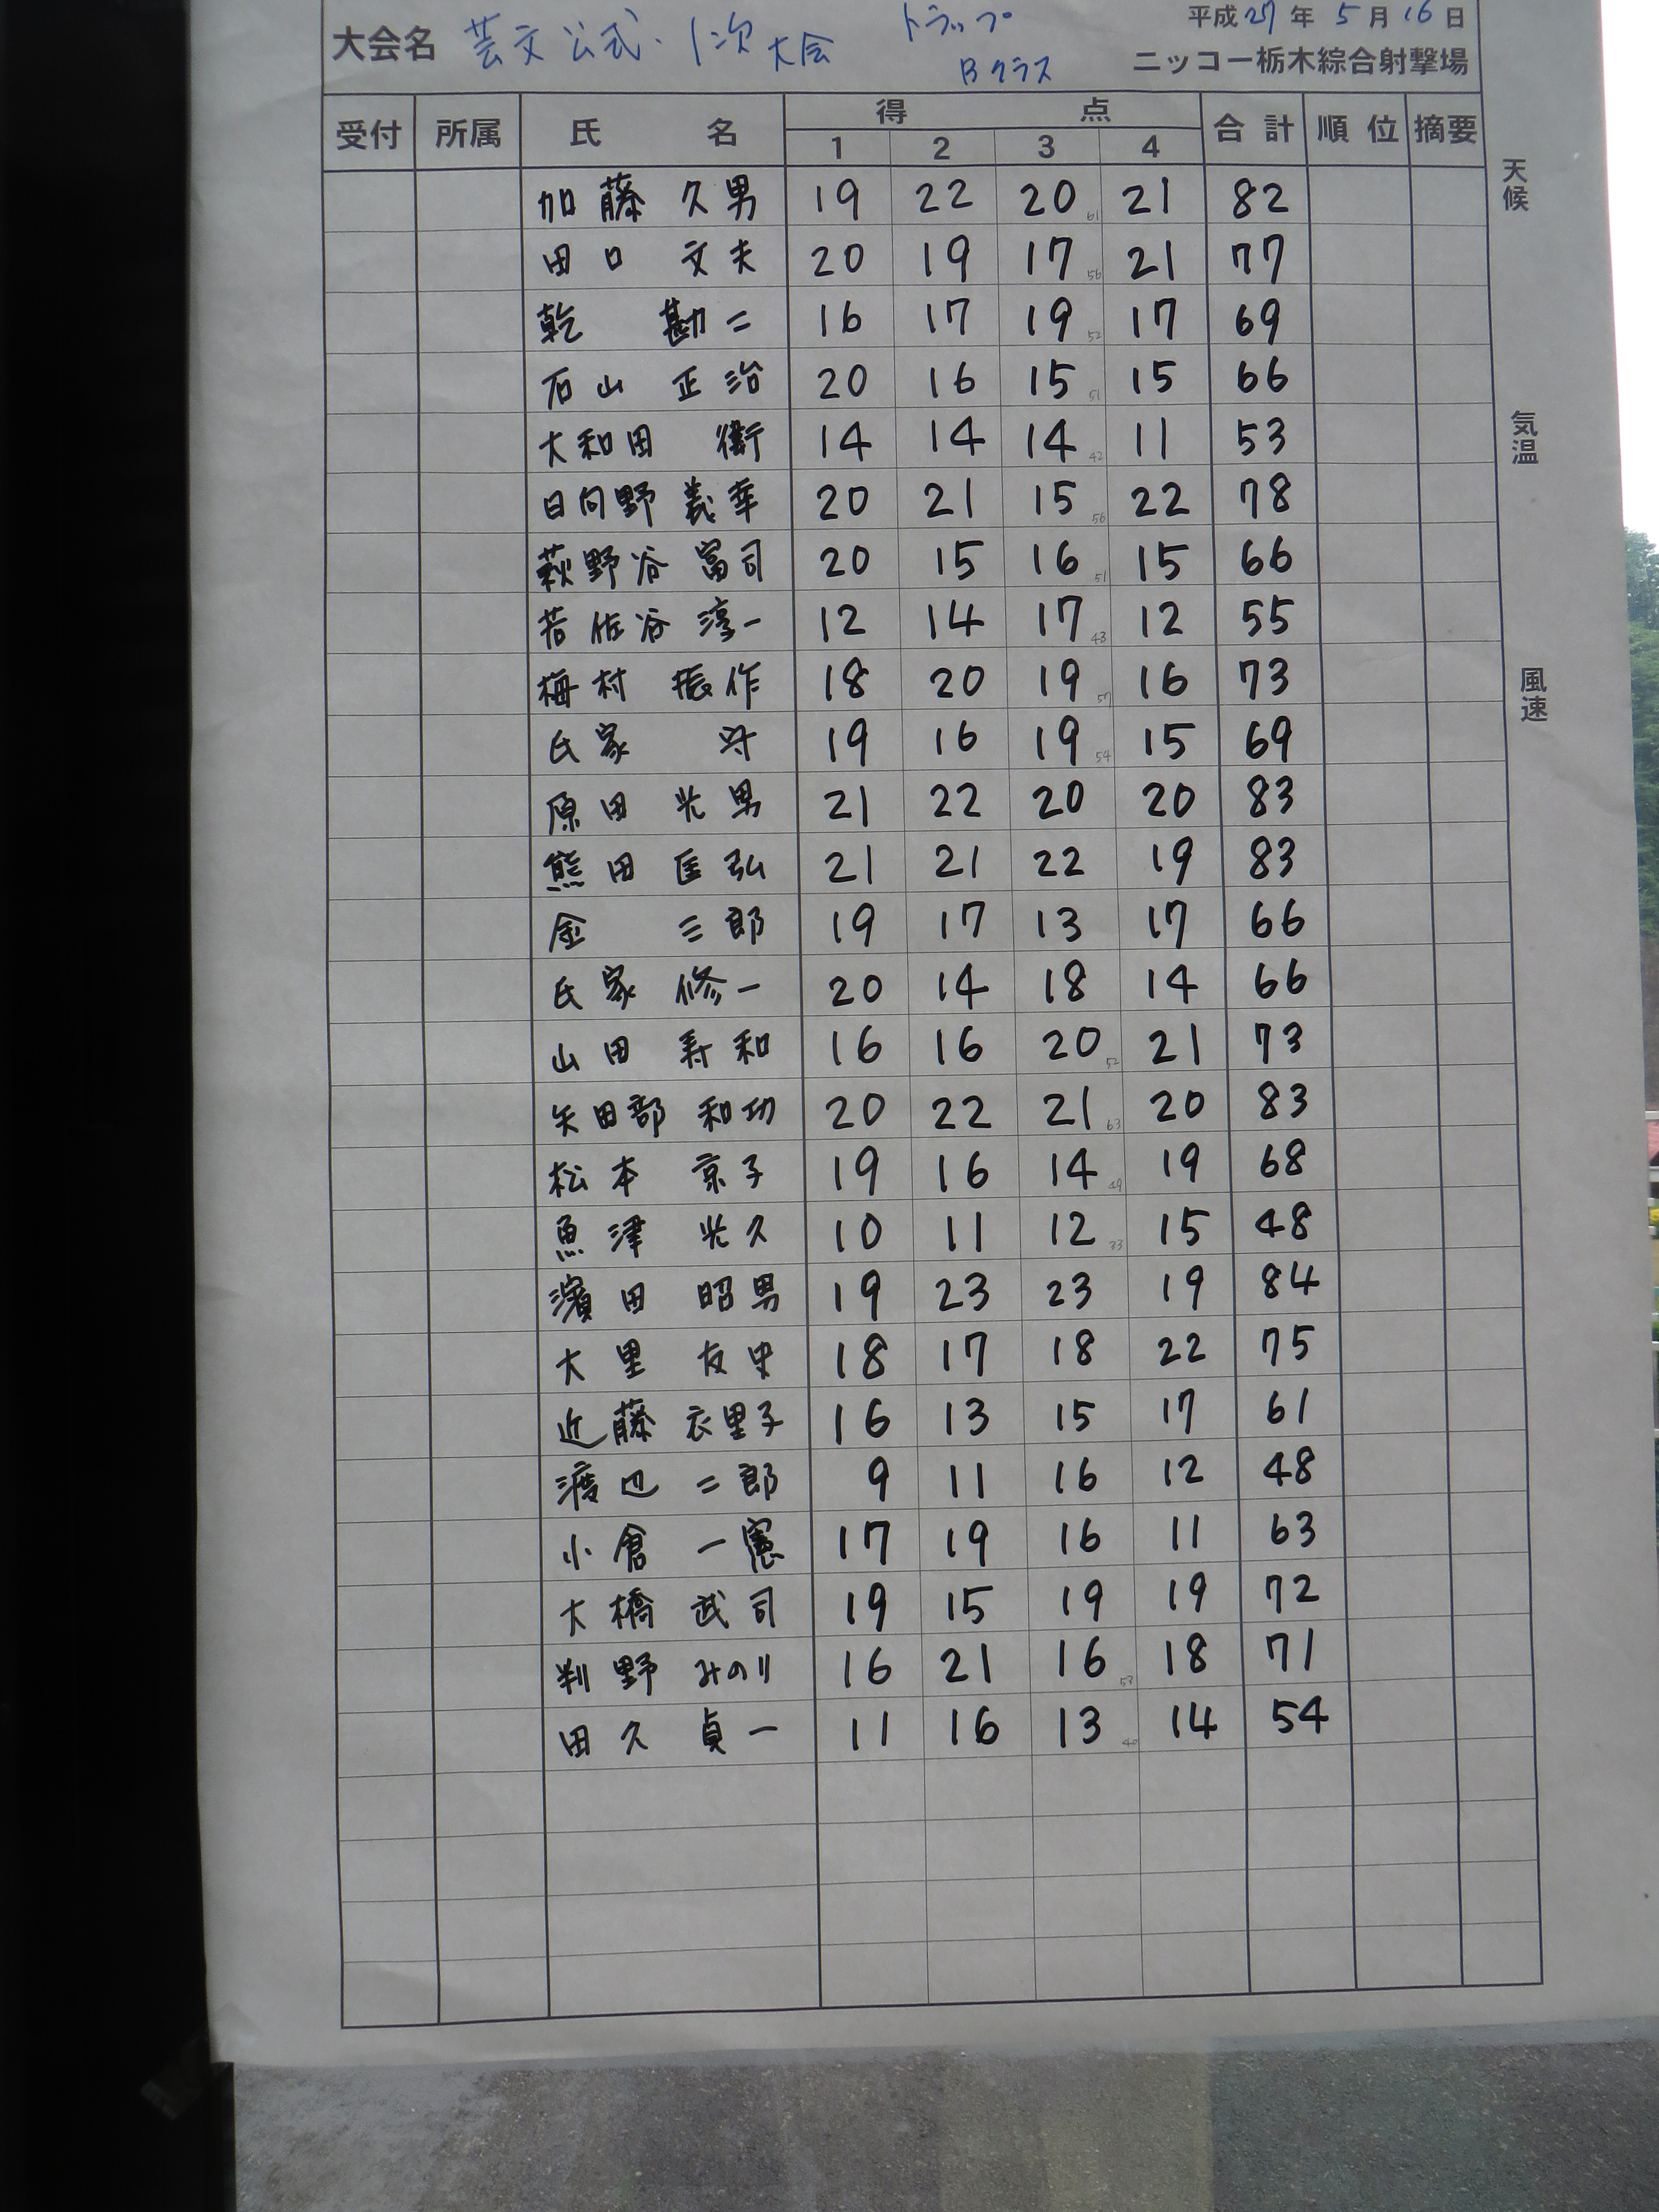 平成27年5月16日
大会名 芸文公式・1次大会 トラップ Bクラス
ニッコー栃木綜合射撃場
受付 所属 氏名 得点 合計 順位 摘要
1 2 3 4
加藤 久男 19 22 20 61 21 82
田口 文夫 20 19 17 56 21 77
乾 勘二 16 17 19 52 17 69
石山 正治 20 16 15 51 15 66
大和田 衛 14 14 14 42 11 53
日向野 義幸 20 21 15 56 22 78
萩野谷 富司 20 15 16 51 15 66
若佐谷 淳一 12 14 17 43 12 55
梅村 振作 18 20 19 57 16 73
氏家 守 19 16 19 54 15 69
原田 光男 21 22 20 20 83
熊田 匡弘 21 21 22 19 83
金 三郎 19 17 13 17 66
氏家 修一 20 14 18 14 66
山田 寿和 16 16 20 52 21 73
矢田部 和功 20 22 21 63 20 83
松本 京子 19 16 14 49 19 68
魚津 光久 10 11 12 33 15 48
濱田 昭男 19 23 23 19 84
大里 友史 18 17 18 22 75
近藤 衣里子 16 13 15 17 61
渡辺 二郎 9 11 16 12 48
小倉 一憲 17 19 16 11 63
大橋 武司 19 15 19 19 72
判野 みのり 16 21 16 53 18 71
田久 貞一 11 16 13 40 14 54
天候
気温
風速